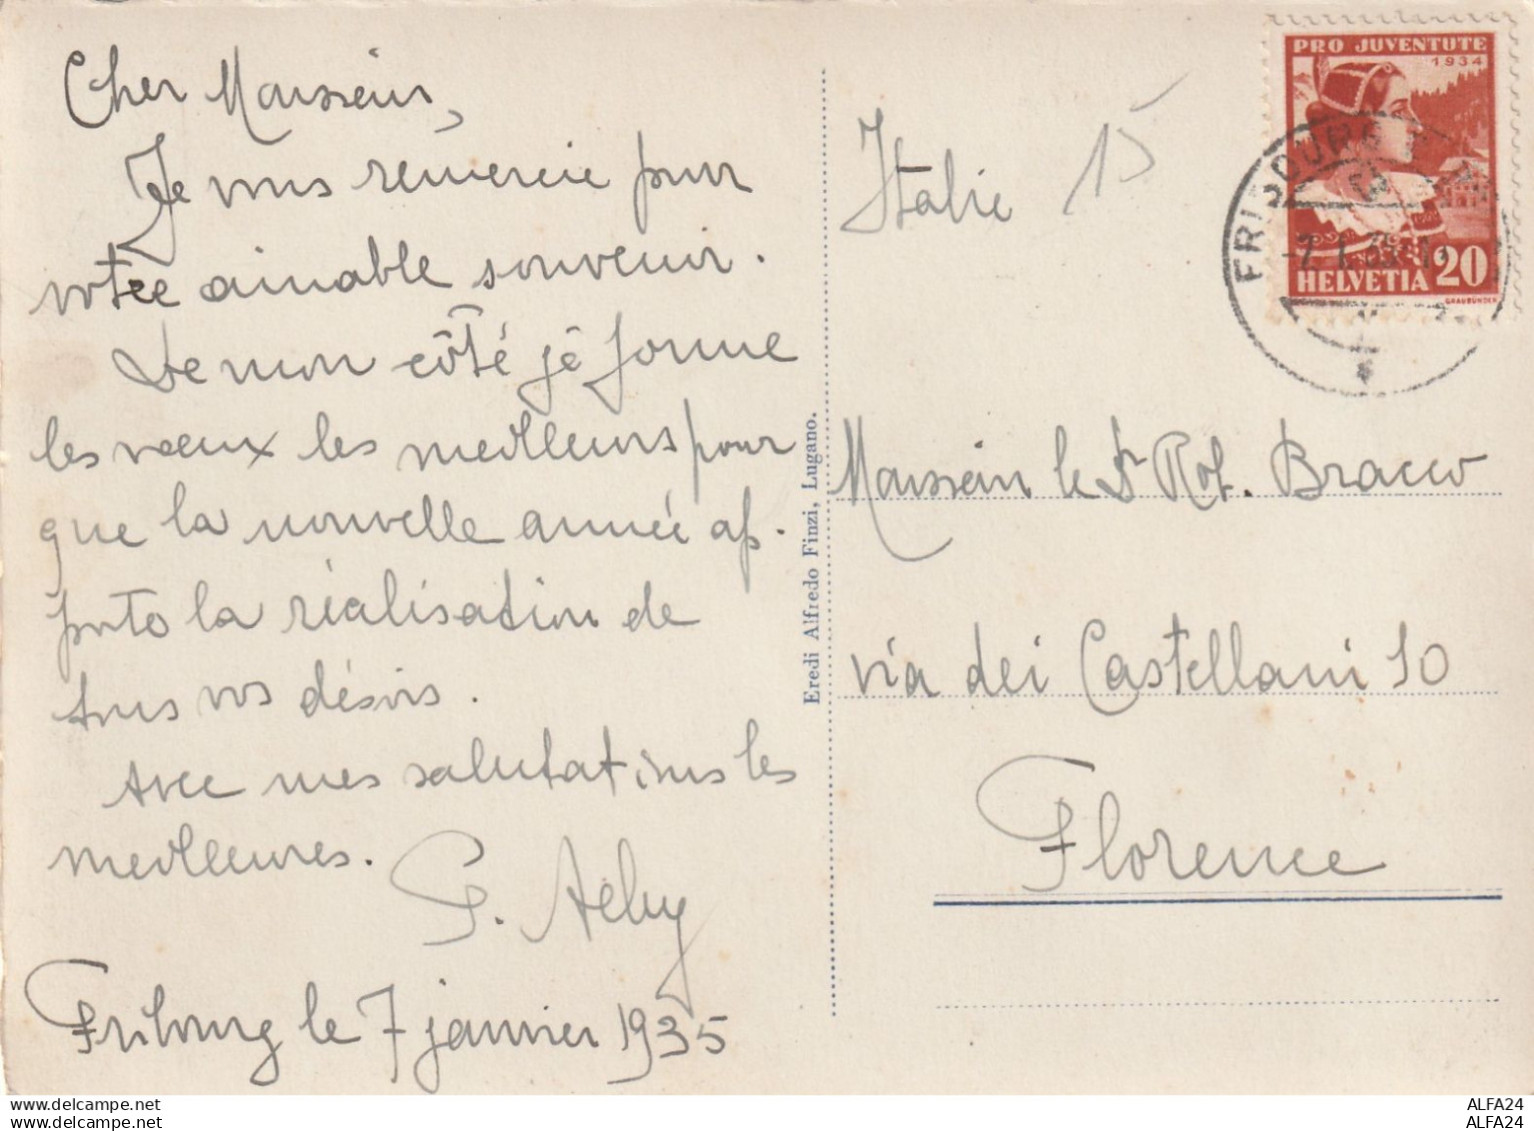 Cher Monsieur,
Je vous remercie pour
votre aimable souvenir.
De mon côté je forme
les vœux les meilleurs pour
que la nouvelle année ap-
porte la réalisation de
tous vos désirs.
Avec mes salutations les
meilleures.
P. Aeby
Fribourg le 7 janvier 1935
Eredi Alfredo Finzi, Lugano.
Italie
15
PRO JUVENTUTE
1934
HELVETIA 20
GRAUBÜNDEN
FRIBOURG
-7.I.35
Monsieur le Dr Rob. Bracco
via dei Castellani 10
Florence
www.delcampe.net
your mail
ALFA24
ALFA24